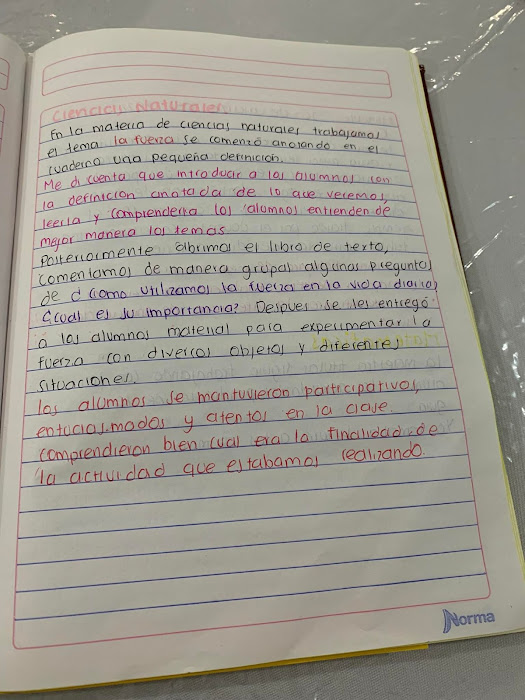 Ciencias Naturales
En la materia de ciencias naturales trabajamos
el tema la fuerza se comenzó anotando en el
cuaderno una pequeña definición.
Me di cuenta que introducir a los alumnos con
la definición anotada de lo que veremos,
leerla y comprenderla los alumnos entienden de
mejor manera los temas.
Posteriormente abrimos el libro de texto,
comentamos de manera grupal algunas preguntas
de ¿como utilizamos la fuerza en la vida diaria,
¿cual es su importancia? Despues se les entregó
a los alumnos material para experimentar la
fuerza con diversos objetos y diferentes
situaciones.
los alumnos se mantuvieron participativos,
entuciasmados y atentos en la clase.
comprendieron bien cual era la finalidad de
la actividad que estabamos realizando.
Norma